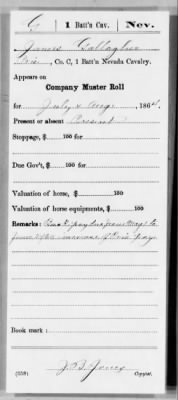 G | 1 Batt'n Cav. | Nev.
James Gallagher
Pri, Co. C, 1 Batt'n Nevada Cavalry.
Appears on
Company Muster Roll
for July & Aug, 1864.
Present or absent Present
Stoppage, $ 100 for
Due Gov't, $ 100 for
Valuation of horse, $ 100
Valuation of horse equipments, $ 100
Remarks: Due pay due from May 1 to
June increase of Priv. pay
Book mark:
Jones
(358) Copyist.